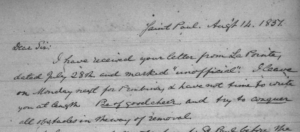 Saint Paul. Aug't 14. 1851.
Dear Sir:
I have received your letter from La Pointe,
dated July 28th and marked "unofficial". I leave
on Monday next for Pembina, & have not time to write
you at length. Be of good cheer, and try to conquer
all obstacles in the way of removal.
before the